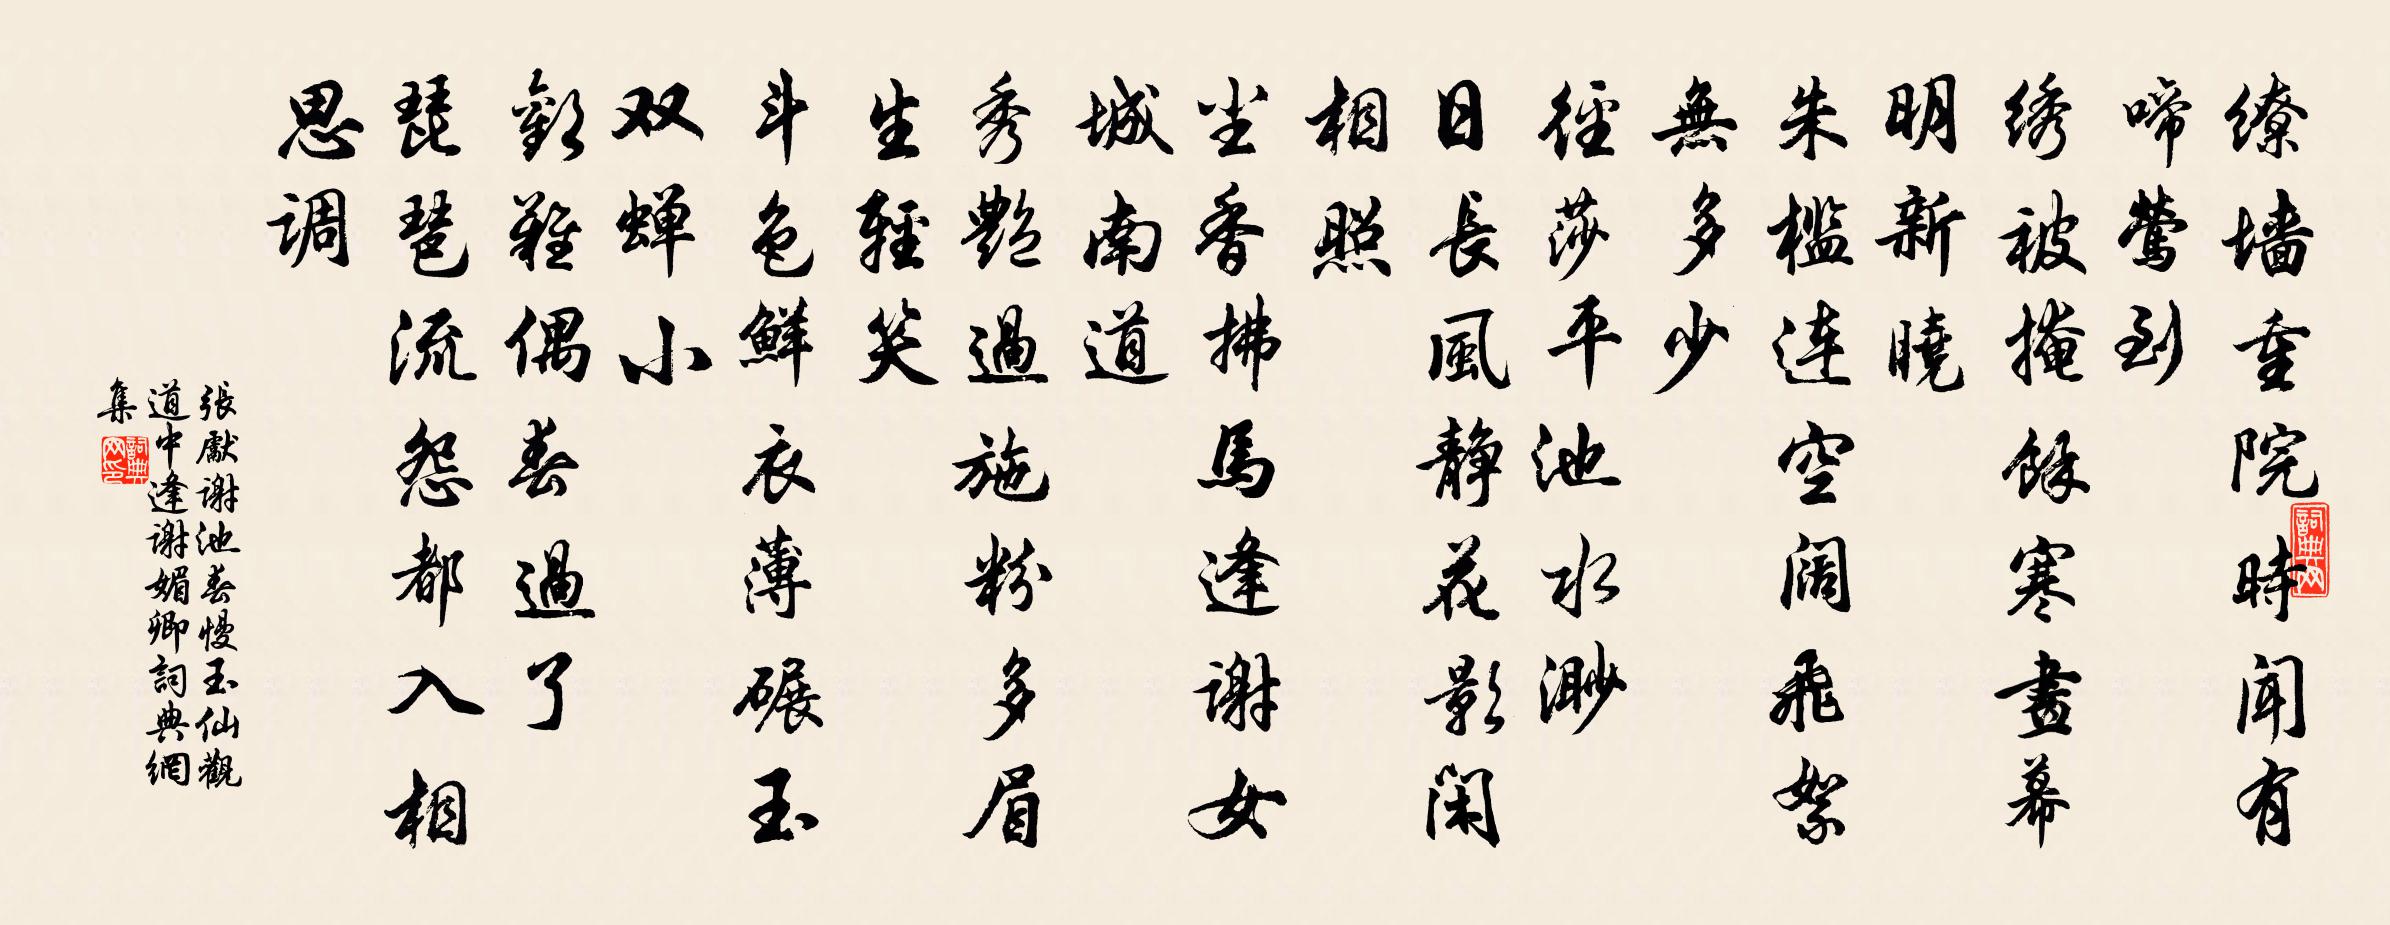 繚墻重院時闻有
啼鶯到
绣被掩餘寒畫幕
明新曉
朱檻連空阔飛絮
無多少
徑莎平池水渺
日長風静花影閑
相照
尘香拂馬逢谢女
城南道
秀艷過施粉多眉
生輕笑
斗色鮮衣薄碾玉
双蝉小
歡難偶春過了
琵琶流怨都入相
思调
張獻谢池春慢玉仙觀
道中逢谢媚卿詞典網
集
詞典网
詞典网印